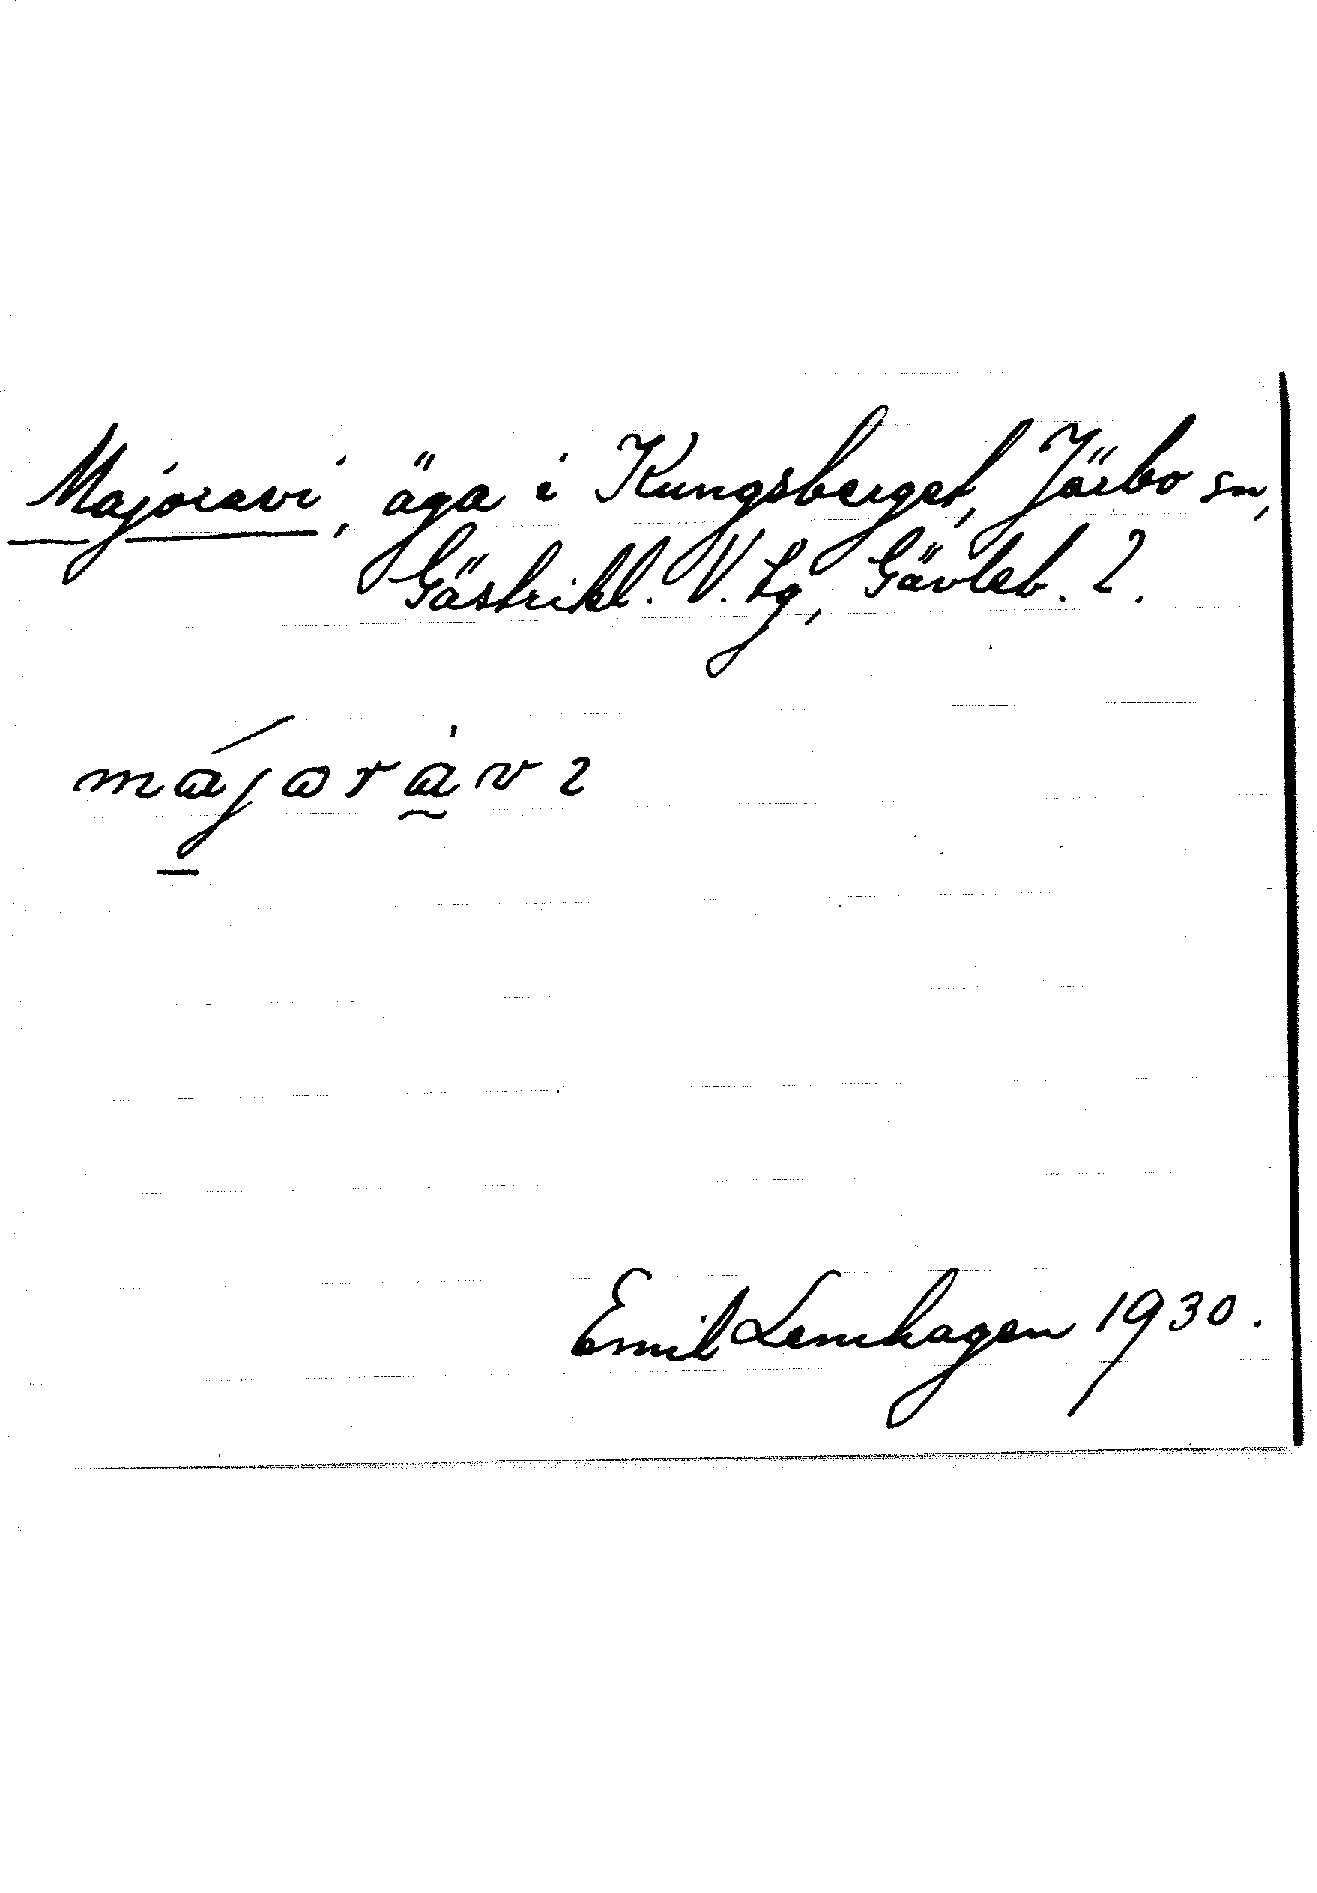 Majoravi, äga i Kungsberget, Järbo sn,
Gästrikl. V. tg, Gävleb. l.
Emil Lenhagen 1930.